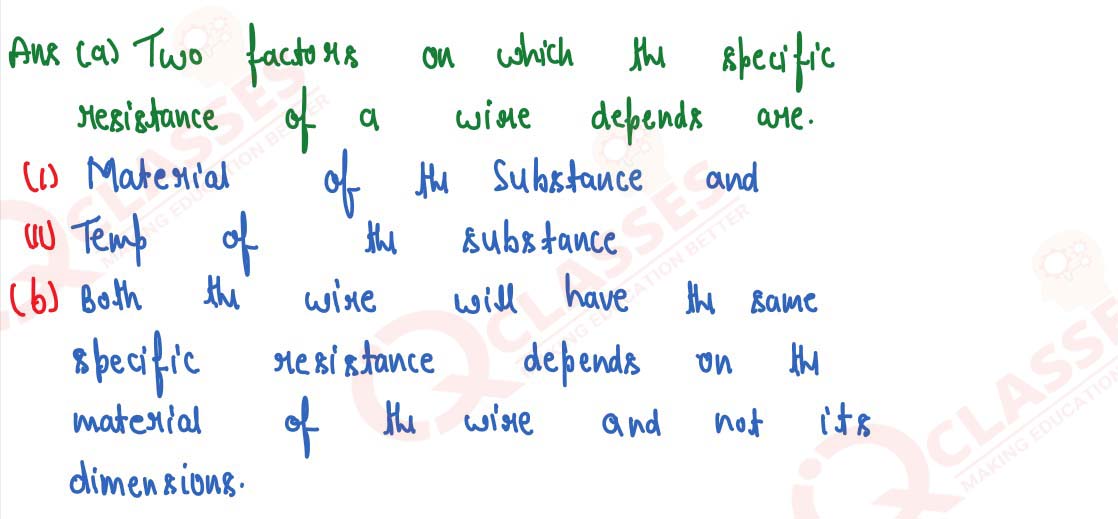 Ans (a) Two factors on which the specific
resistance of a wire depends are.
(i) Material of the Substance and
(ii) Temp of the substance
(b) Both the wire will have the same
specific resistance depends on the
material of the wire and not its
dimensions.
CLASSES
MAKING EDUCATION BETTER
CLASSES
MAKING EDUCATION BETTER
CLASSES
MAKING EDUCATION